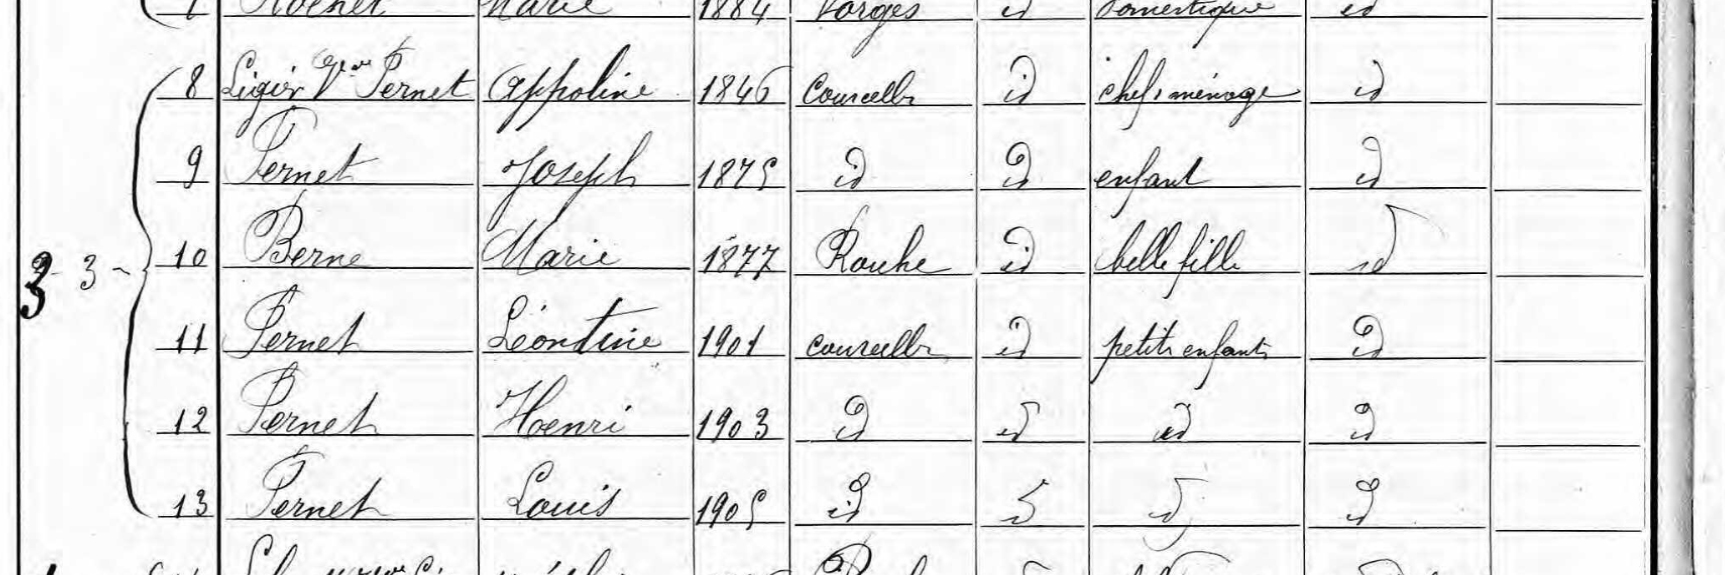 Marie 1884 Vorges id domestique id
8 Ligier Vve Pernet Appoline 1846 Courcelles id chef ménage id
9 Pernet Joseph 1875 id id enfant id
3 3 10 Berne Marie 1877 Rouhe id belle fille id
11 Pernet Léontine 1901 courcelles id petits enfants id
12 Pernet Henri 1903 id id id id
13 Pernet Louis 1905 id id id id